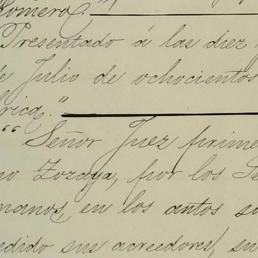 Romero."
Presentado á las diez
de Julio de ochocientos
brica."
"" Señor Juez prime
no Zozaya, por los Se
manos, en los autos so
dido sus acreedores, su